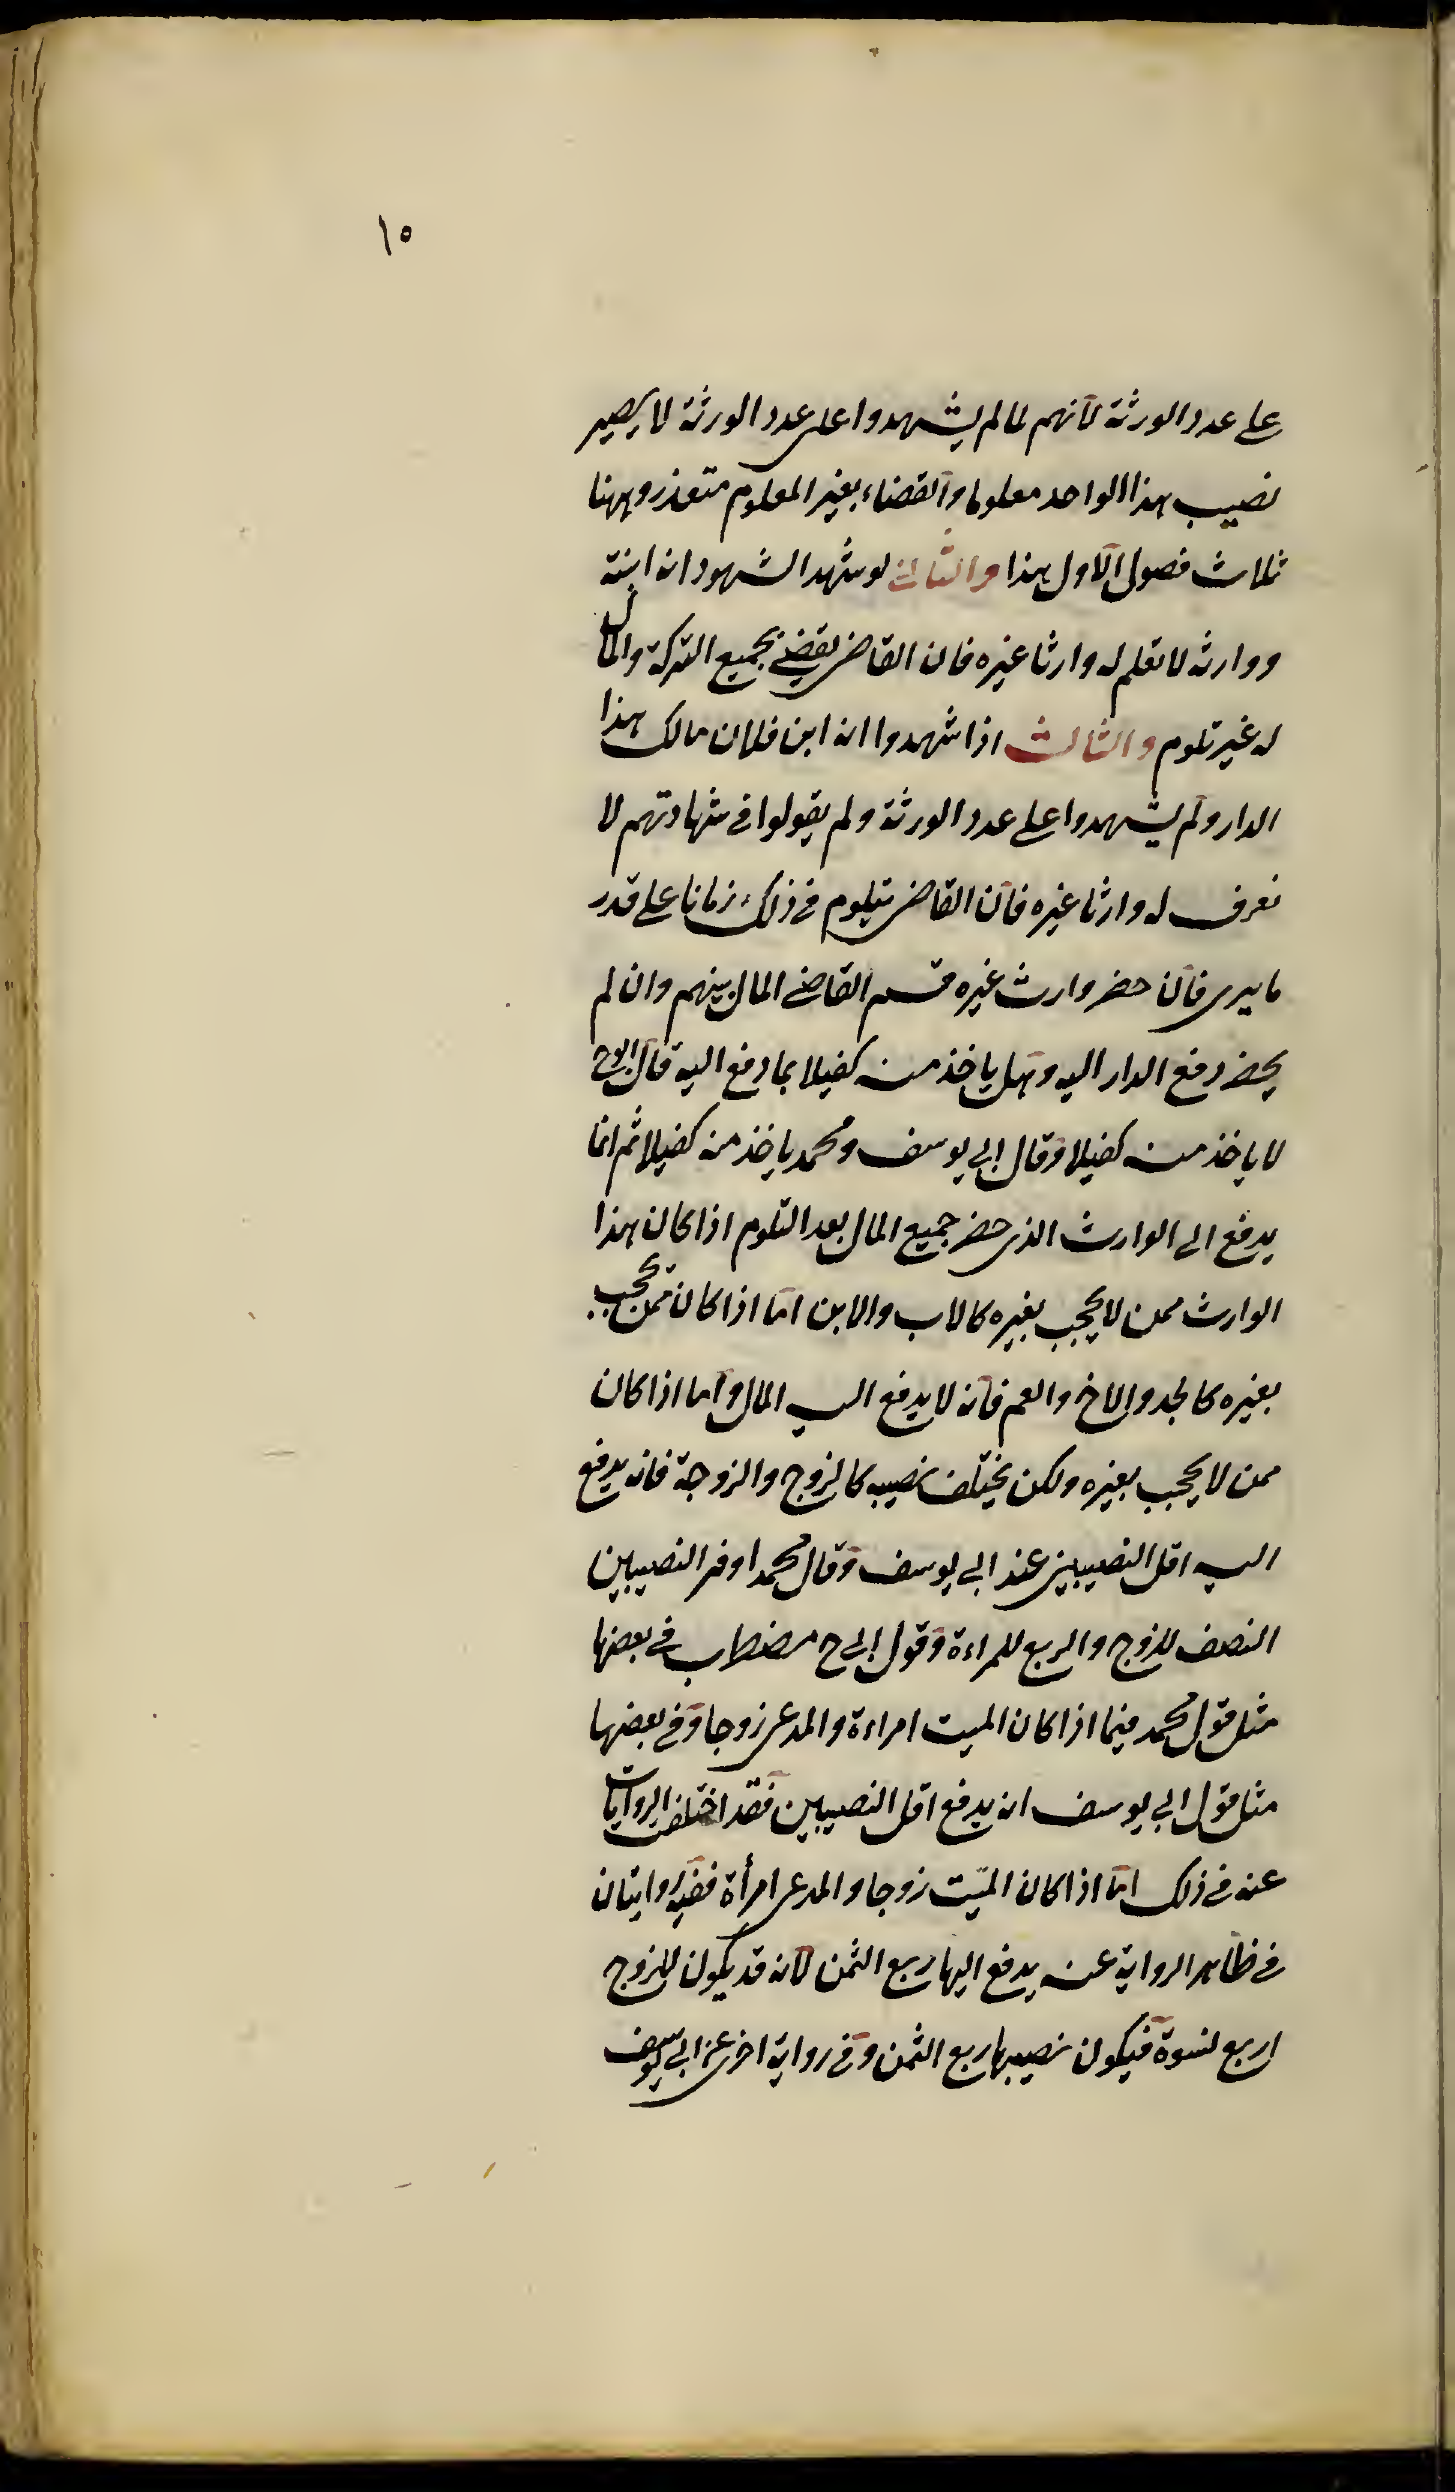 ١٥
على عدد الورثة لانهم لما لم يشهدوا على عدد الورثة لا يصير
نصيب هذا الواحد معلوما والقضاء بغير المعلوم متعذر وههنا
ثلاث فصول الاول هذا والثانى لو شهد الشهود انه ابنه
ووارثه لا نعلم له وارثا غيره فان القاضى يقضى بجميع التركة والمال
له غير تلوم والثالث اذا شهدوا انه ابن فلان مالك هذا
الدار ولم يشهدوا على عدد الورثة ولم يقولوا فى شهادتهم لا
نعرف له وارثا غيره فان القاضى يتلوم فى ذلك زمانا على قدر
ما يرى فان حضر وارث غيره قسم القاضى المال بينهم وان لم
يحضر دفع الدار اليه وهل ياخذ منه كفيلا بما دفع اليه قال ابوح
لا ياخذ منه كفيلا وقال ابى يوسف ومحمد ياخذ منه كفيلا ثم انما
يدفع الى الوارث الذى حضر جميع المال بعد التلوم اذا كان هذا
الوارث ممن لا يحجب بغيره كالاب والابن اما اذا كان ممن يحجب
بغيره كالجد والاخ والعم فانه لا يدفع اليه المال واما اذا كان
ممن لا يحجب بغيره ولكن يختلف نصيبه كالزوج والزوجة فانه يدفع
اليه اقل النصيبين عند ابى يوسف وقال محمد اوفر النصيبين
النصف للزوج والربع للمراءة وقول ابى ح مضطرب فى بعضها
مثل قول محمد فيما اذا كان الميت امراءة والمدعى زوجا وفى بعضها
مثل قول ابى يوسف انه يدفع اقل النصيبين فقد اختلفت الروايات
عنه فى ذلك اما اذا كان الميّت زوجا والمدعى امرأة ففيه روايتان
فى ظاهر الرواية عنه يدفع اليها ربع الثمن لانه قد يكون للزوج
اربع نسوة فيكون نصيبها ربع الثمن وفى رواية اخرى عن ابى يوسف